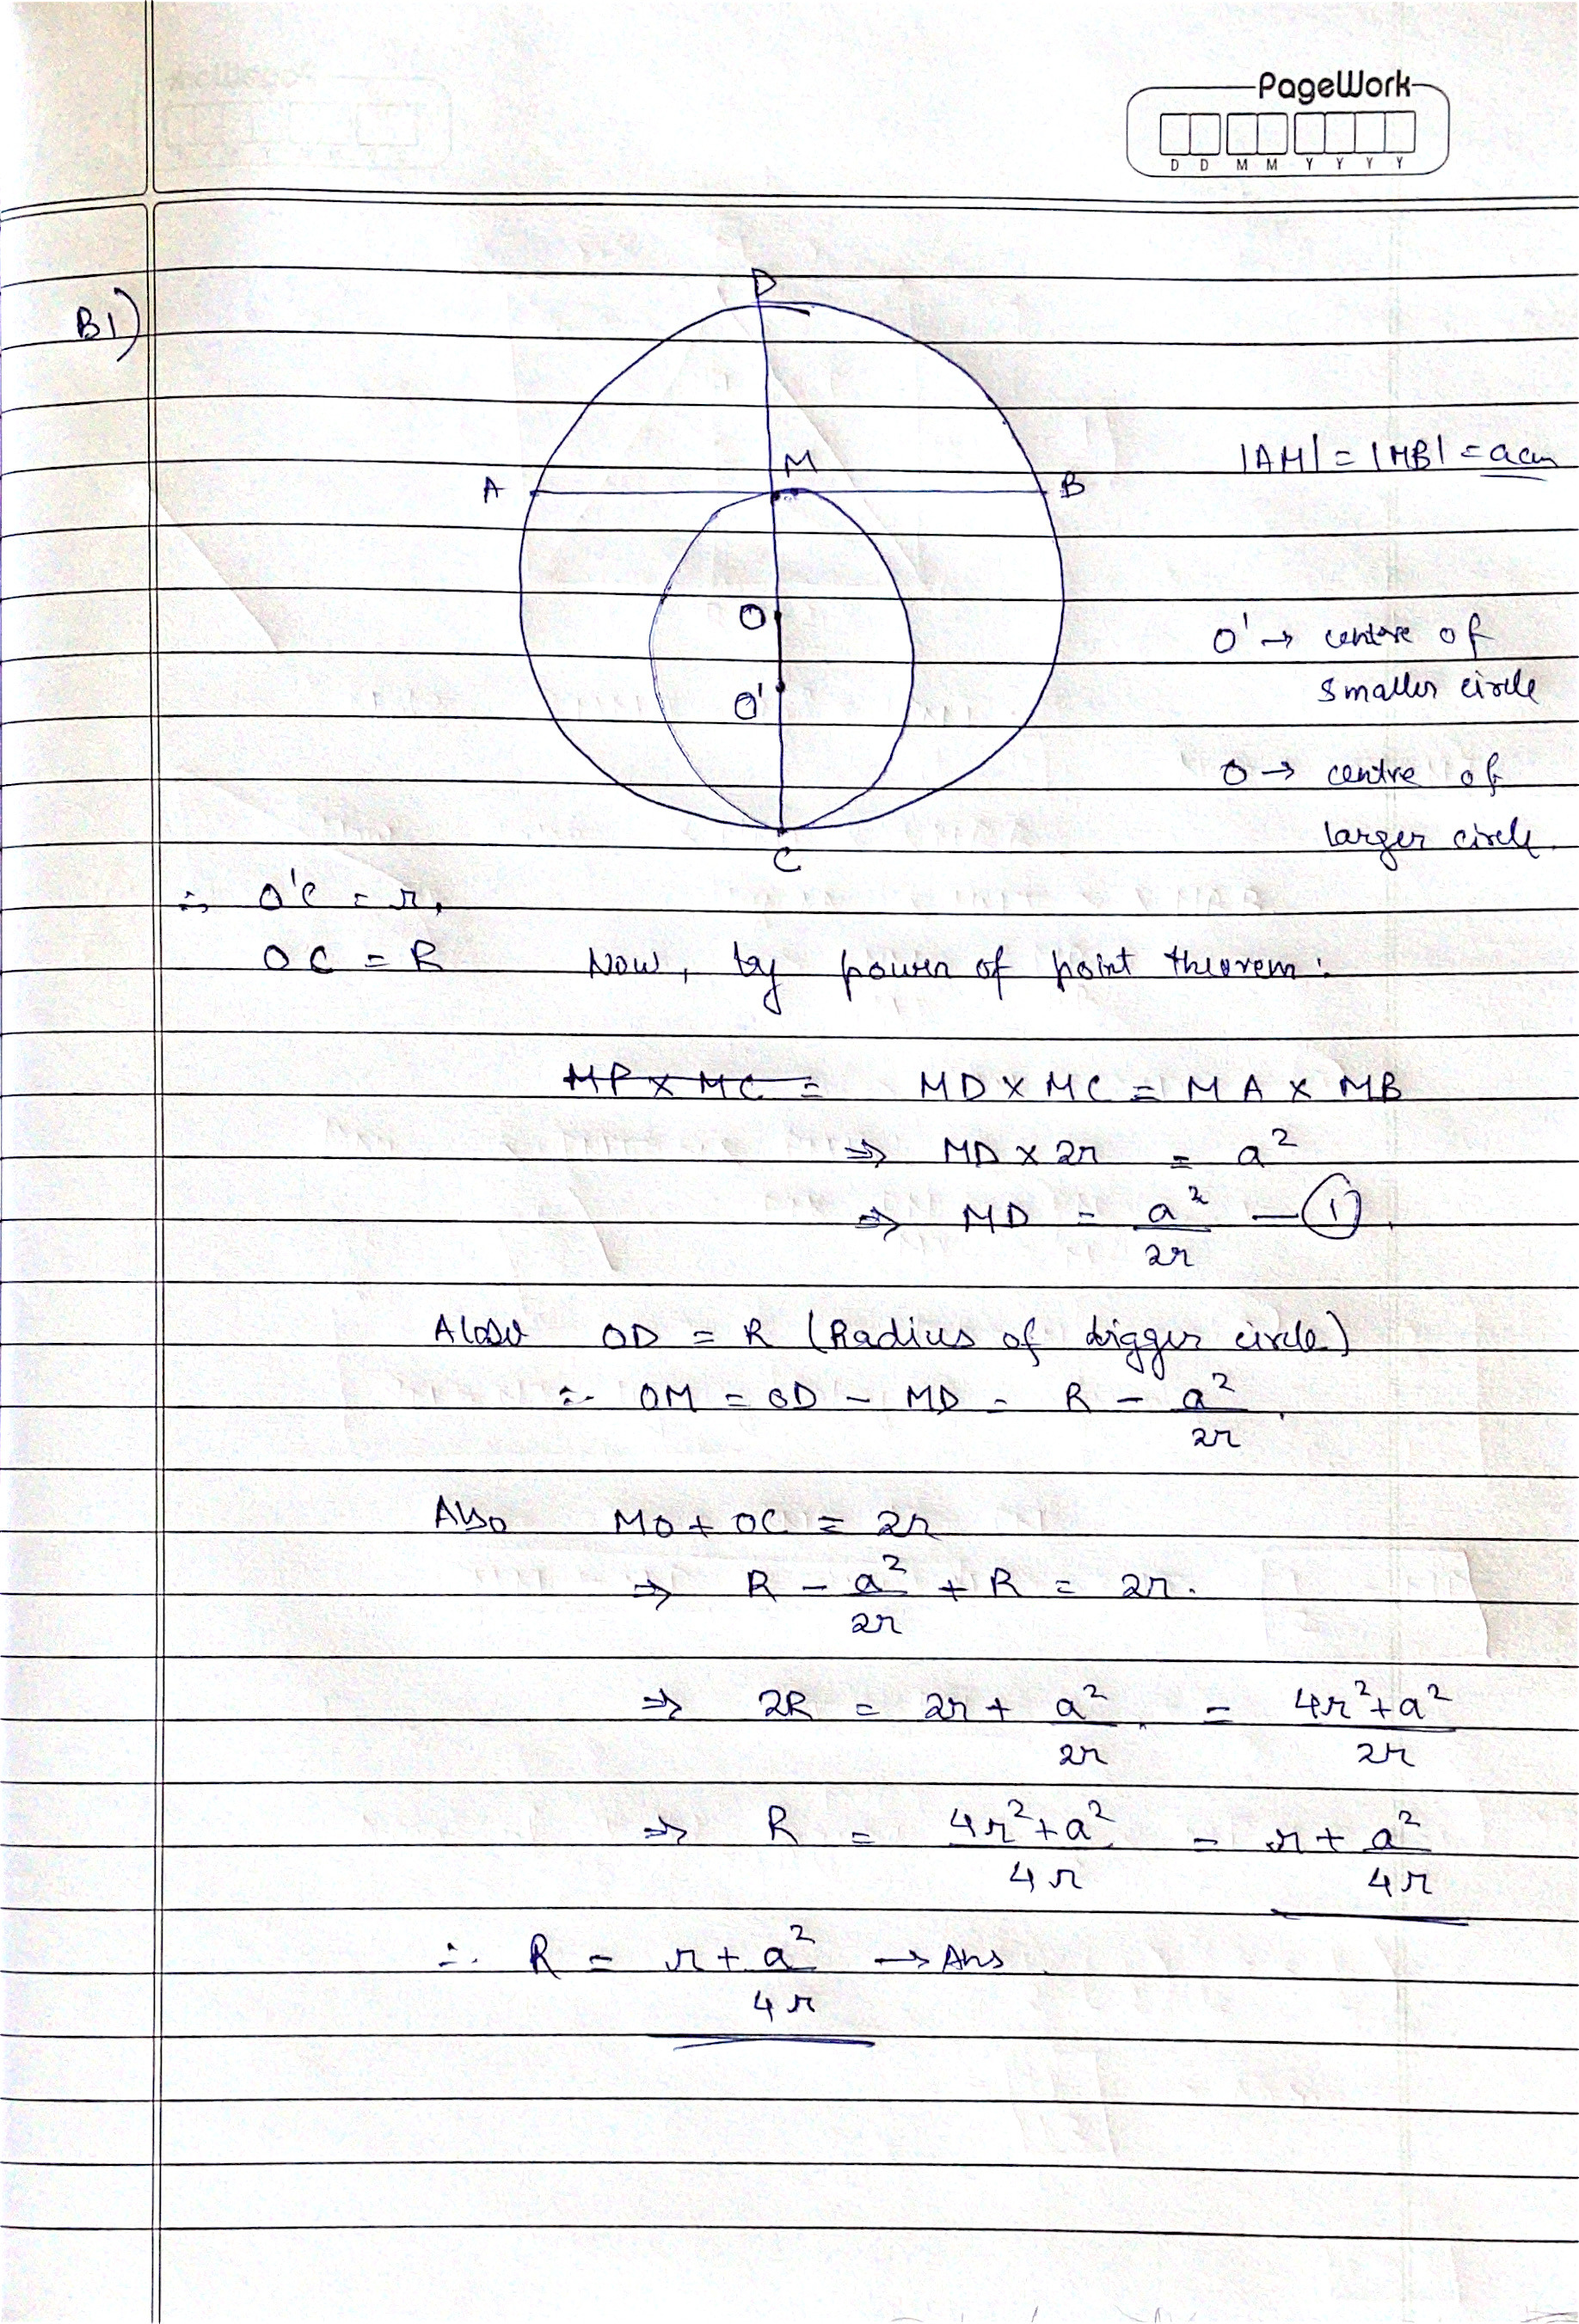 PageWork
D D M M Y Y Y Y
B1)
D
M
A
B
|AM| = |MB| = a cm
O
O' → centre of
smaller circle
O'
O → centre of
larger circle.
C
∴ O'C = r,
OC = R Now, by power of point theorem:
MP × MC = MD × MC = MA × MB
⇒ MD × 2r = a²
⇒ MD = a²/2r — (1)
Also OD = R (Radius of bigger circle)
∴ OM = OD - MD = R - a²/2r.
Also MO + OC = 2r
⇒ R - a²/2r + R = 2r.
⇒ 2R = 2r + a²/2r. = 4r²+a²/2r
⇒ R = 4r²+a²/4r = r + a²/4r
∴ R = r + a²/4r → Ans